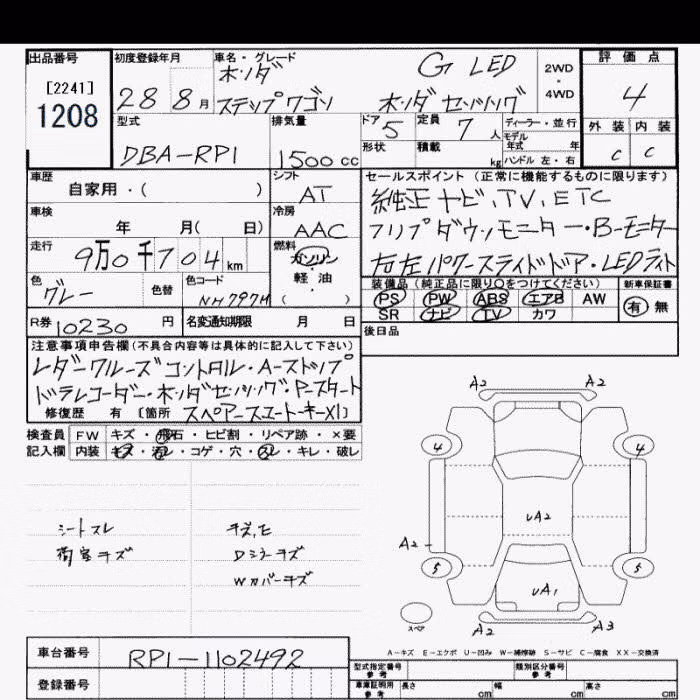 出品番号 初度登録年月 車名・グレード 評価点
[2241] ホンダ G LED 2WD
1208 28 8月 ステップワゴン ホンダセンシング ・4WD 4
型式 排気量 ドア 5 定員 7人 ディーラー・並行 外装 内装
DBA-RP1 1500cc 形状 積載 kg モデル年式 年 ハンドル 左・右 C C
車歴 シフト セールスポイント(正常に機能するものに限ります)
自家用・( ) AT 純正ナビ、TV、ETC
車検 冷房 フリップダウンモニター・Bーモニター
年 月( 日) AAC 右左パワースライドドア・LEDライト
走行 燃料
9万0千704km ガソリン・軽油( )
色 色替 色コード 装備品(純正品に限り○をつけてください) 新車保証書
グレー NH797M PS PW ABS エアB AW 有 無
SR ナビ TV カワ
R券 10230円 名変通知期限 月 日 後日品
注意事項申告欄(不具合内容等は具体的に記入して下さい)
レーダークルーズコントロル・Aーストップ
ドラレコーダー・ホンダセンシング・Pースタート
修復歴 有 〔箇所 スペアースマートーキーX1〕
検査員 FW キズ・飛石・ヒビ割・リペア跡・×要
記入欄 内装 キズ・汚レ・コゲ・穴・スレ・キレ・破レ
シートスレ
荷室キズ
Dミラーキズ
Wカバーキズ
A2 A2
4 4
UA2
A2
5 5
UA1
スペア A2 A3
A-キズ E-エクボ U-凹み W-補修跡 S-サビ C-腐食 XX-交換済
車台番号 RP1-1102492 型式指定番号 参考 類別区分番号 参考
登録番号 車庫証明用 参考 長さ cm 幅 cm 高さ cm